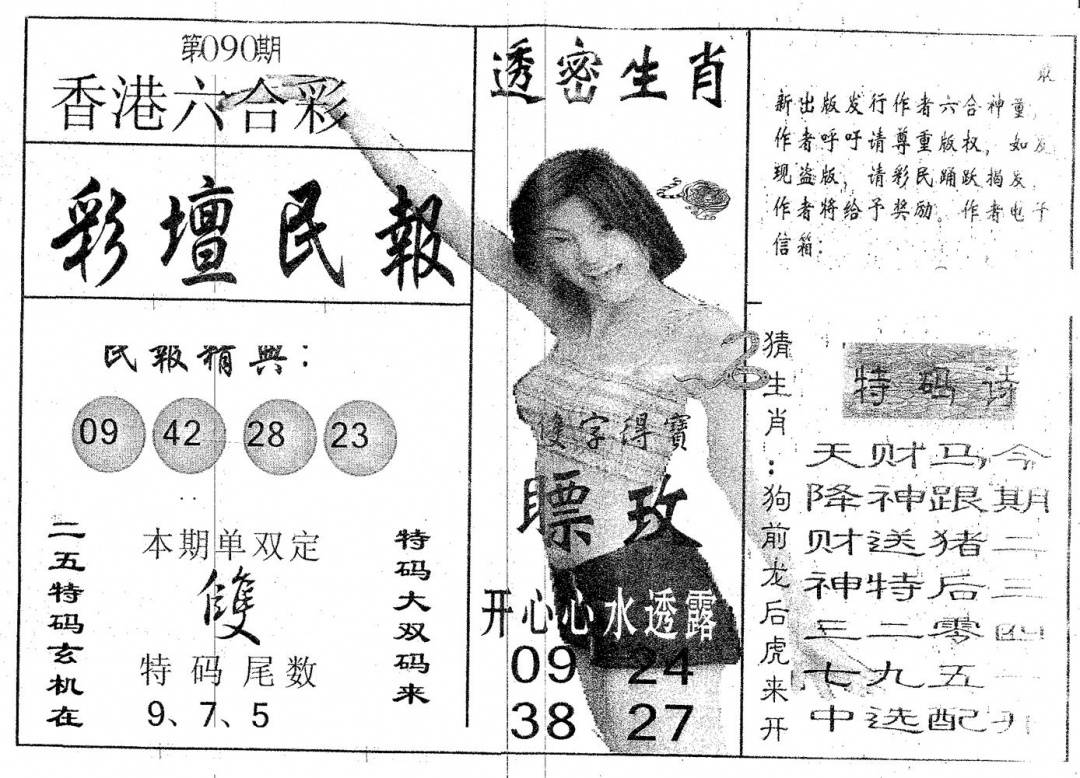 第090期
香港六合彩
彩壇民報
民報精典：
09 42 28 23
二五特码玄机在
本期单双定
雙
特码尾数
9、7、5
特码大双码来
透密生肖
雙字得寶
瞟玫
开心心水透露
09 24
38 27
最
新出版发行作者六合神童，
作者呼吁请尊重版权，如发
现盗版，请彩民踊跃揭发，
作者将给予奖励。作者电子
信箱：
猜生肖：狗前龙后虎来开
特码诗
今期二三四一开
马跟猪后零五配
财神送特二九选
天降财神三七中